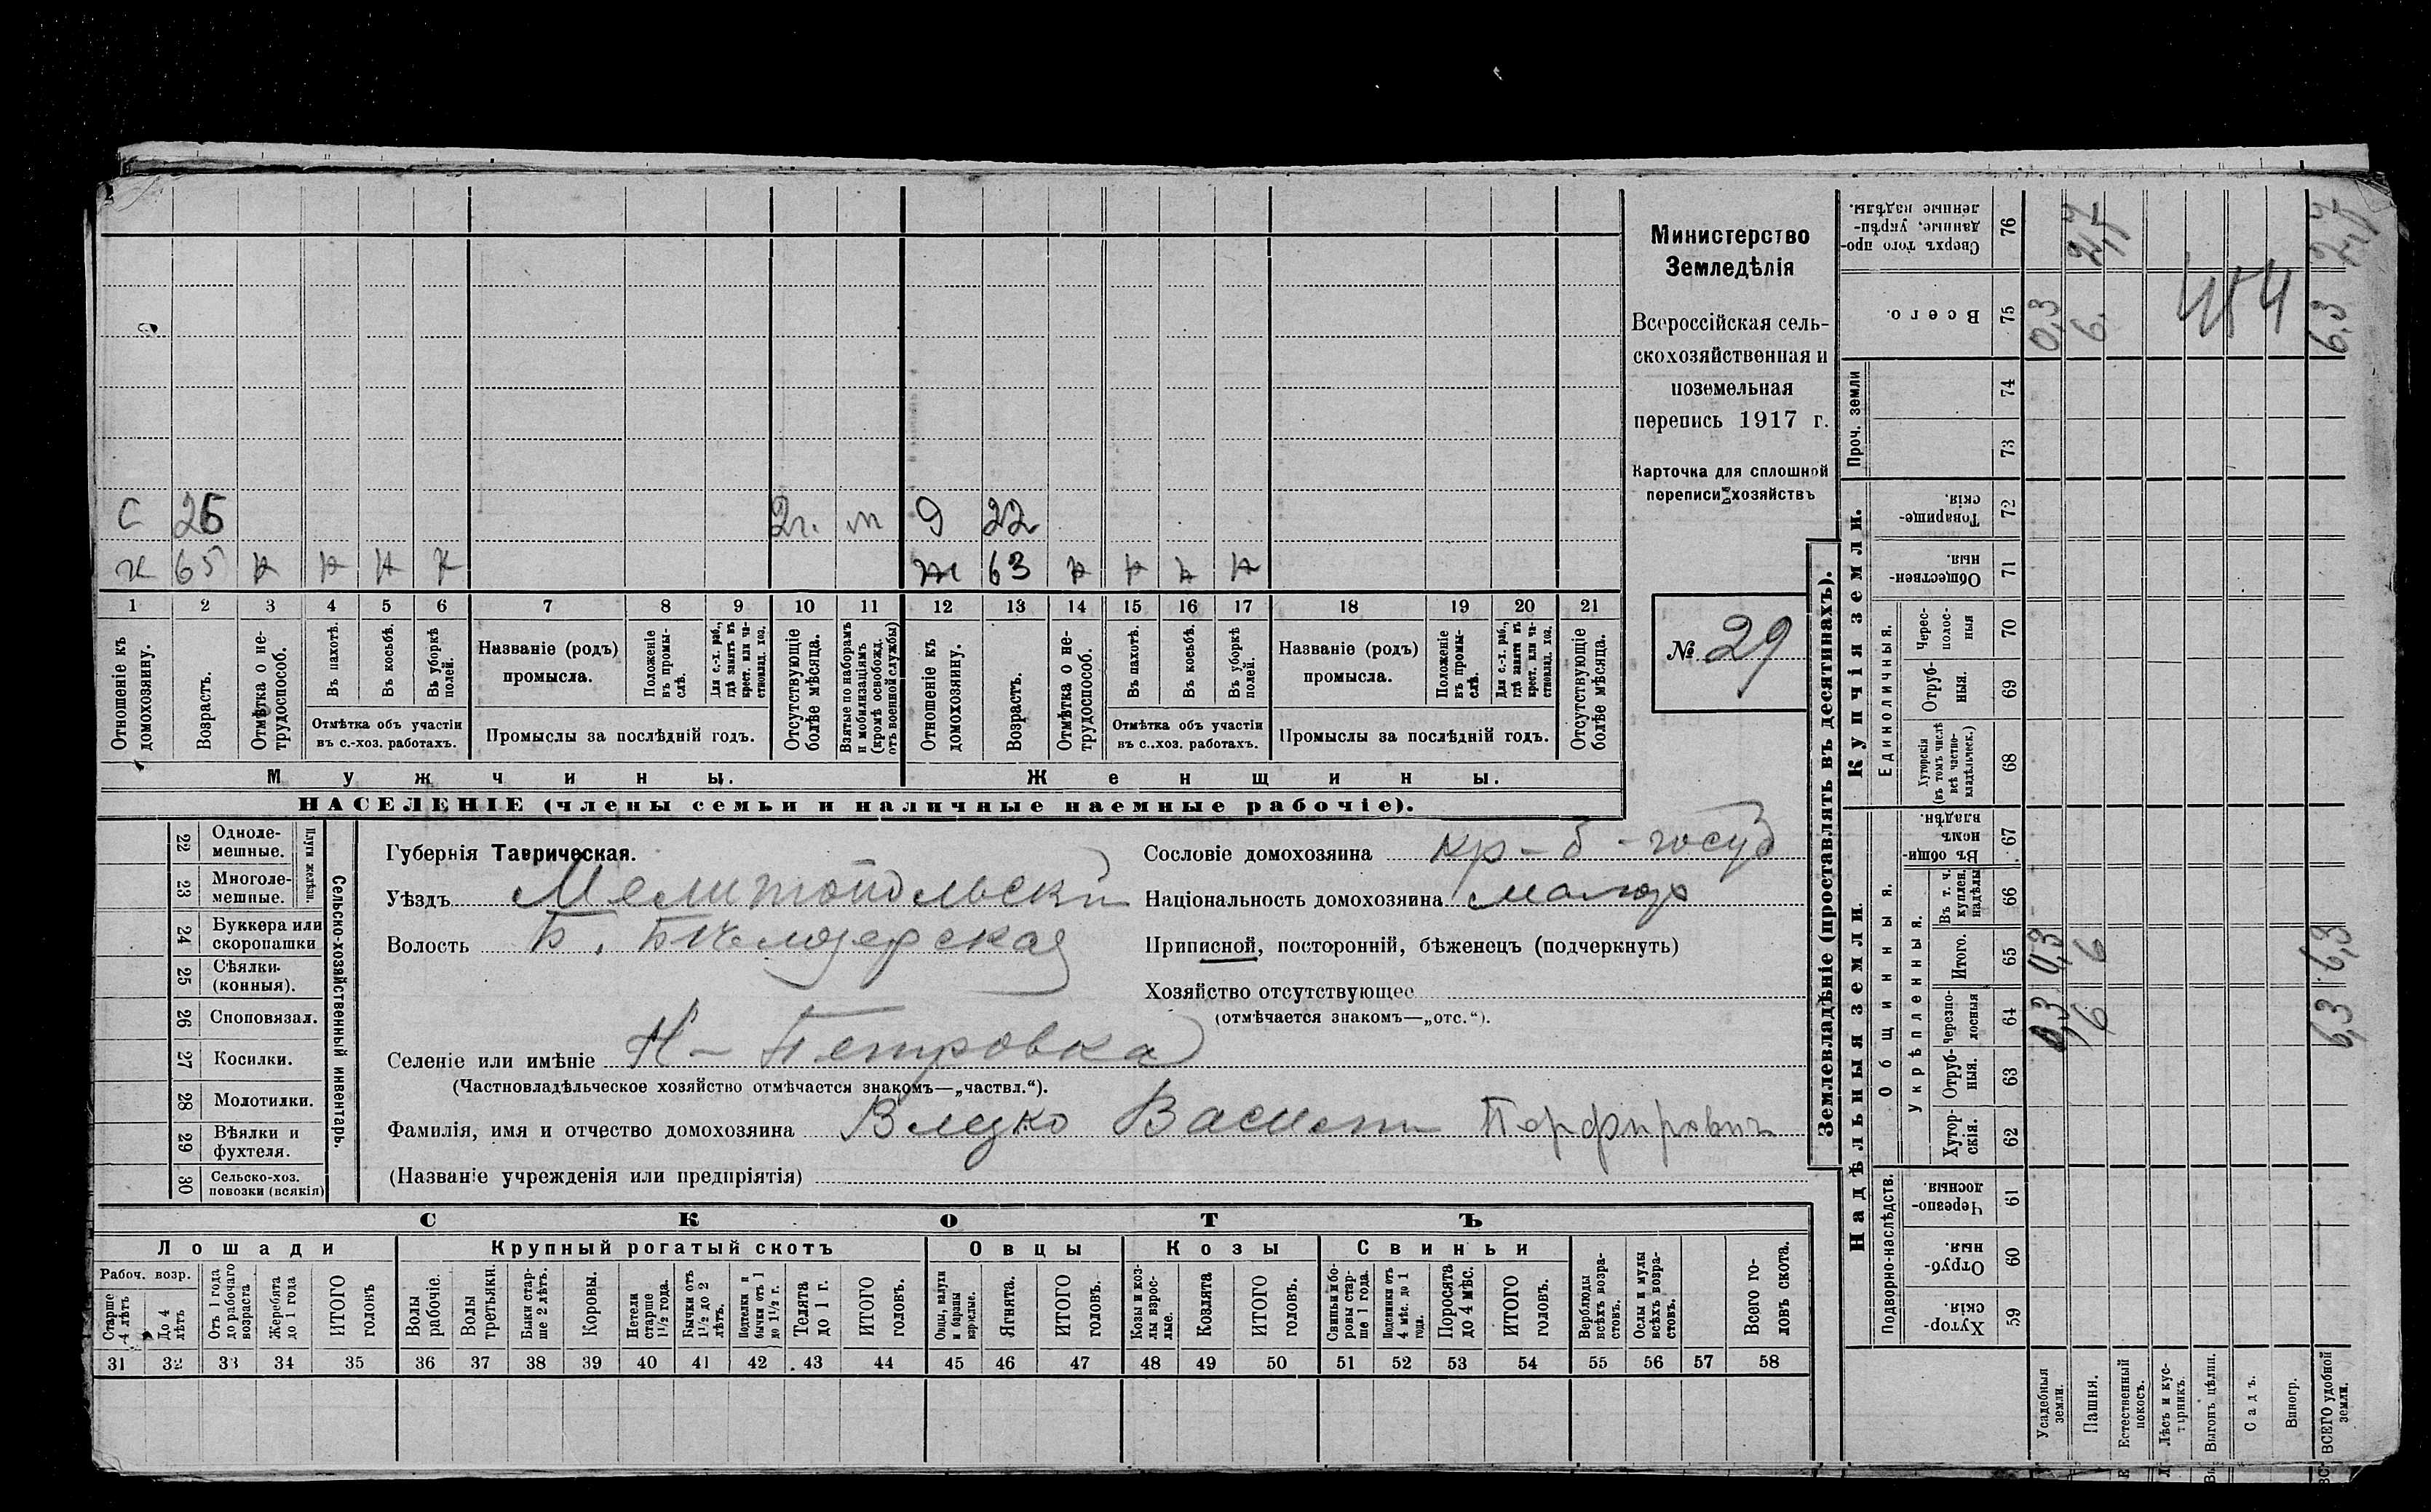 Министерство
Земледѣлія
Всероссійская сель-
скохозяйственная и
поземельная
перепись 1917 г.
Карточка для сплошной
переписи хозяйствъ
№ 29
С 25 2г. м 9 22
х 65 н н н н ж 63 н н н н
1 2 3 4 5 6 7 8 9 10 11 12 13 14 15 16 17 18 19 20 21
Отношеніе къ домохозяину.
Возрастъ.
Отмѣтка о не-трудоспособ.
Въ пахотѣ.
Въ косьбѣ.
Въ уборкѣ полей.
Отмѣтка объ участіи
въ с.-хоз. работахъ.
Названіе (родъ)
промысла.
Положеніе въ промы-слѣ.
Для с.-х. раб., гдѣ занятъ въ крест. или ча-стновлад. хоз.
Промыслы за послѣдній годъ.
Отсутствующіе болѣе мѣсяца.
Взятые по наборамъ и мобилизаціямъ (кромѣ освобожд. отъ военной службы)
Отношеніе къ домохозяину.
Возрастъ.
Отмѣтка о не-трудоспособ.
Въ пахотѣ.
Въ косьбѣ.
Въ уборкѣ полей.
Отмѣтка объ участіи
въ с..хоз. работахъ.
Названіе (родъ)
промысла.
Положеніе въ промы-слѣ.
Для с.-х. раб., гдѣ занята въ крест. или ча-стновлад. хоз.
Промыслы за послѣдній годъ.
Отсутствующіе болѣе мѣсяца.
Мужчины.
Женщины.
НАСЕЛЕНІЕ (члены семьи и наличные наемные рабочіе).
Сельско-хозяйственный инвентарь.
Плуги желѣзн.
22 Одноле-мешные.
23 Многоле-мешные.
24 Буккера или скоропашки
25 Сѣялки. (конныя).
26 Сноповязал.
27 Косилки.
28 Молотилки.
29 Вѣялки и фухтеля.
30 Сельско-хоз. повозки (всякія)
Губернія Таврическая.
Уѣздъ Мелитопольскій
Волость Б. Бѣлозерская
Селеніе или имѣніе Н-Петровка
(Частновладѣльческое хозяйство отмѣчается знакомъ—„частвл.“).
Фамилія, имя и отчество домохозяина Влезко Василій Порфировичъ
(Названіе учрежденія или предпріятія)
Сословіе домохозяина кр-б-госуд
Національность домохозяина малор
Приписной, посторонній, бѣженецъ (подчеркнуть)
Хозяйство отсутствующее
(отмѣчается знакомъ—„отс.“).
СКОТЪ
Лошади
Крупный рогатый скотъ
Овцы
Козы
Свиньи
Рабоч. возр.
Старше 4 лѣтъ
До 4 лѣтъ
Отъ 1 года до рабочаго возраста
Жеребята до 1 года
ИТОГО головъ
Волы рабочіе.
Волы третьяки.
Быки стар-ше 2 лѣтъ.
Коровы.
Нетели старше 1½ года.
Бычки отъ 1½ до 2 лѣтъ.
Подтелки и бычки отъ 1 до 1½ г.
Телята до 1 г.
ИТОГО головъ.
Овцы, валухи и бараны взрослые.
Ягнята.
ИТОГО головъ.
Козы и коз-лы взрос-лые.
Козлята
ИТОГО головъ.
Свиньи и бо-ровы стар-ше 1 года.
Подсвинки отъ 4 мѣс. до 1 года.
Поросята до 4 мѣс.
ИТОГО головъ.
Верблюды всѣхъ возра-стовъ.
Ослы и мулы всѣхъ возра-стовъ.
Всего го-ловъ скота.
31 32 33 34 35 36 37 38 39 40 41 42 43 44 45 46 47 48 49 50 51 52 53 54 55 56 57 58
Землевладѣніе (проставлять въ десятинахъ).
Надѣльныя земли.
Купчія земли.
Проч. земли
Подворно-наслѣдств.
Общинныя.
Укрѣпленныя.
Единоличныя.
Сверхъ того про-данные, укрѣп-ленные надѣлы. 76 2,7
Всего. 75 0,3 6. 6,3
74
73
Товарище-скія. 72
Обществен-ныя. 71
Черес-полос-ныя 70
Отруб-ныя. 69
Хуторскія (въ томъ числѣ всѣ частно-владѣльческ.) 68
Въ общи-номъ владѣн. 67
Въ т. ч. куплен. надѣлы 66
Итого. 65 0,3 6 6,3
Черезпо-лосныя 64 0,3 6 6,3
Отруб-ныя. 63
Хутор-скія. 62
Черезпо-лосныя. 61
Отруб-ныя. 60
Хутор-скія. 59
Усадебныя земли.
Пашня.
Естественный покосъ.
Лѣсъ и кус-тарникъ.
Выгонъ цѣлин.
Садъ.
Виногр.
ВСЕГО удобной земли.